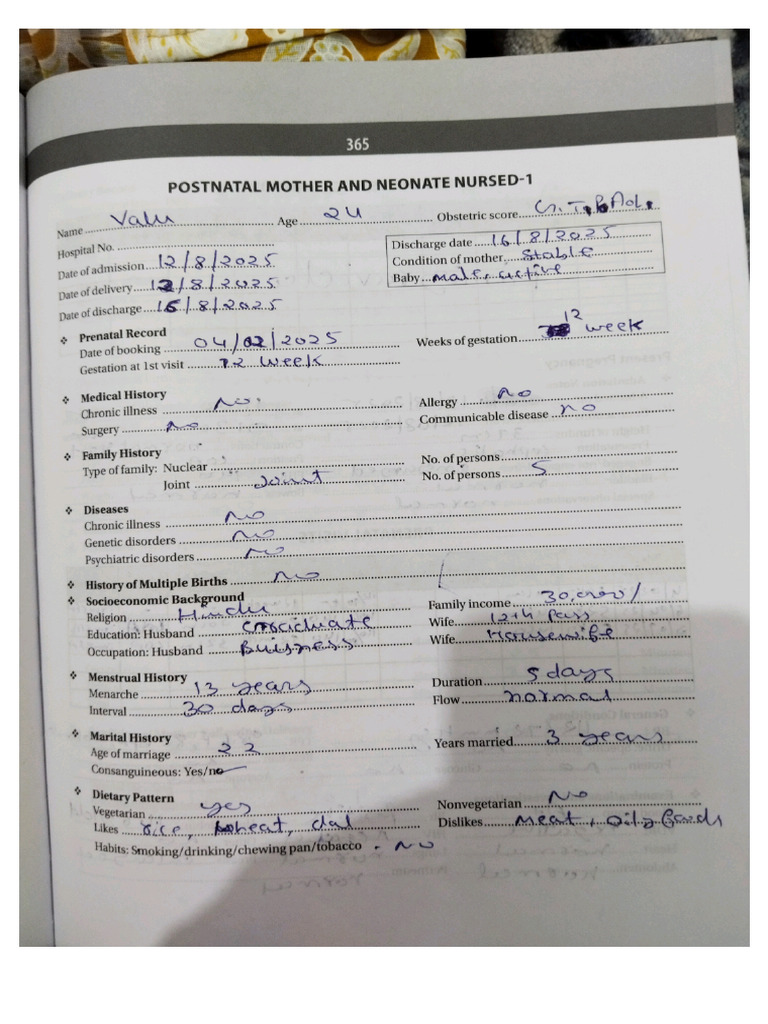 365
POSTNATAL MOTHER AND NEONATE NURSED-1
Name Valu Age 24 Obstetric score
Hospital No.
Date of admission 12/8/2025
Date of delivery 12/8/2025
Date of discharge 16/8/2025
Discharge date 16/8/2025
Condition of mother Stable
Baby male, active
❖ Prenatal Record
Date of booking 04/02/2025 Weeks of gestation 12 week
Gestation at 1st visit 12 week
❖ Medical History
Chronic illness No. Allergy no
Surgery No Communicable disease no
❖ Family History
Type of family: Nuclear No. of persons
Joint Joint No. of persons 5
❖ Diseases
Chronic illness no
Genetic disorders no
Psychiatric disorders no
❖ History of Multiple Births no
❖ Socioeconomic Background
Religion Hindu Family income 30,000/
Education: Husband Graduate Wife 12th Pass
Occupation: Husband Buisness Wife Housewife
❖ Menstrual History
Menarche 13 years Duration 5 days
Interval 30 days Flow normal
❖ Marital History
Age of marriage 22 Years married 3 years
Consanguineous: Yes/no
❖ Dietary Pattern
Vegetarian yes Nonvegetarian No
Likes rice, wheat, dal Dislikes Meat, Oily foods
Habits: Smoking/drinking/chewing pan/tobacco . NO